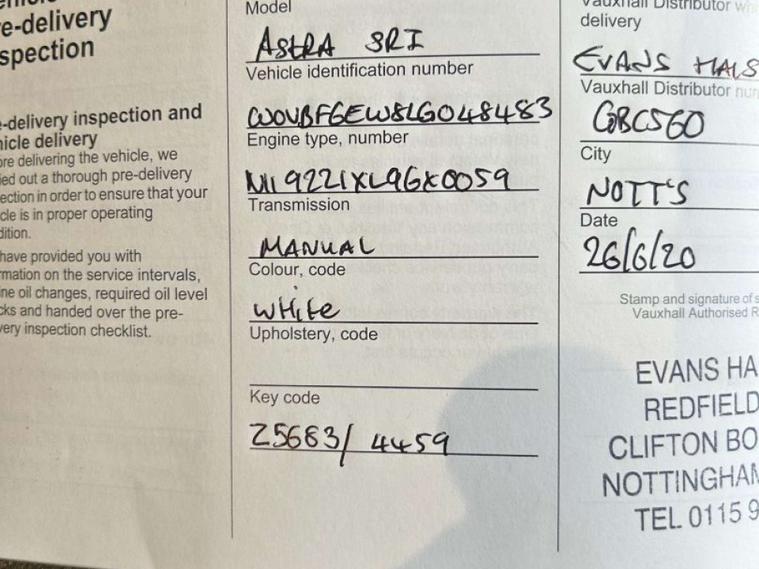 e-delivery
spection
-delivery inspection and
icle delivery
ore delivering the vehicle, we
ied out a thorough pre-delivery
ection in order to ensure that your
cle is in proper operating
dition.
have provided you with
rmation on the service intervals,
ine oil changes, required oil level
cks and handed over the pre-
very inspection checklist.
Model
ASTRA SRI
Vehicle identification number
W0VBF6EW8LG048483
Engine type, number
Transmission
MANUAL
Colour, code
WHite
Upholstery, code
Key code
Z5683/ 4459
Vauxhall Distributor
delivery
EVANS HALS
Vauxhall Distributor num
GBC560
City
NOTT'S
Date
26/6/20
Stamp and signature of s
Vauxhall Authorised R
EVANS HA
REDFIELD
CLIFTON BO
NOTTINGHAM
TEL 0115 9